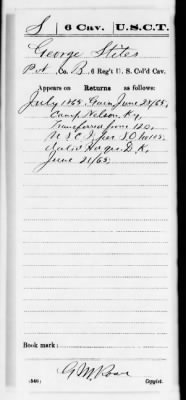 S | 6 Cav. | U.S.C.T.
George Stites
Pvt, Co. B, 6 Reg't U. S. Col'd Cav.
Appears on Returns as follows:
July 1865. Gain June 28/65,
Camp Nelson Ky,
Transferred from 120,
U S C I, per S O No 115
dated Hdqrs. D. K.,
June 21/65.
Book mark:
(546) Copyist.